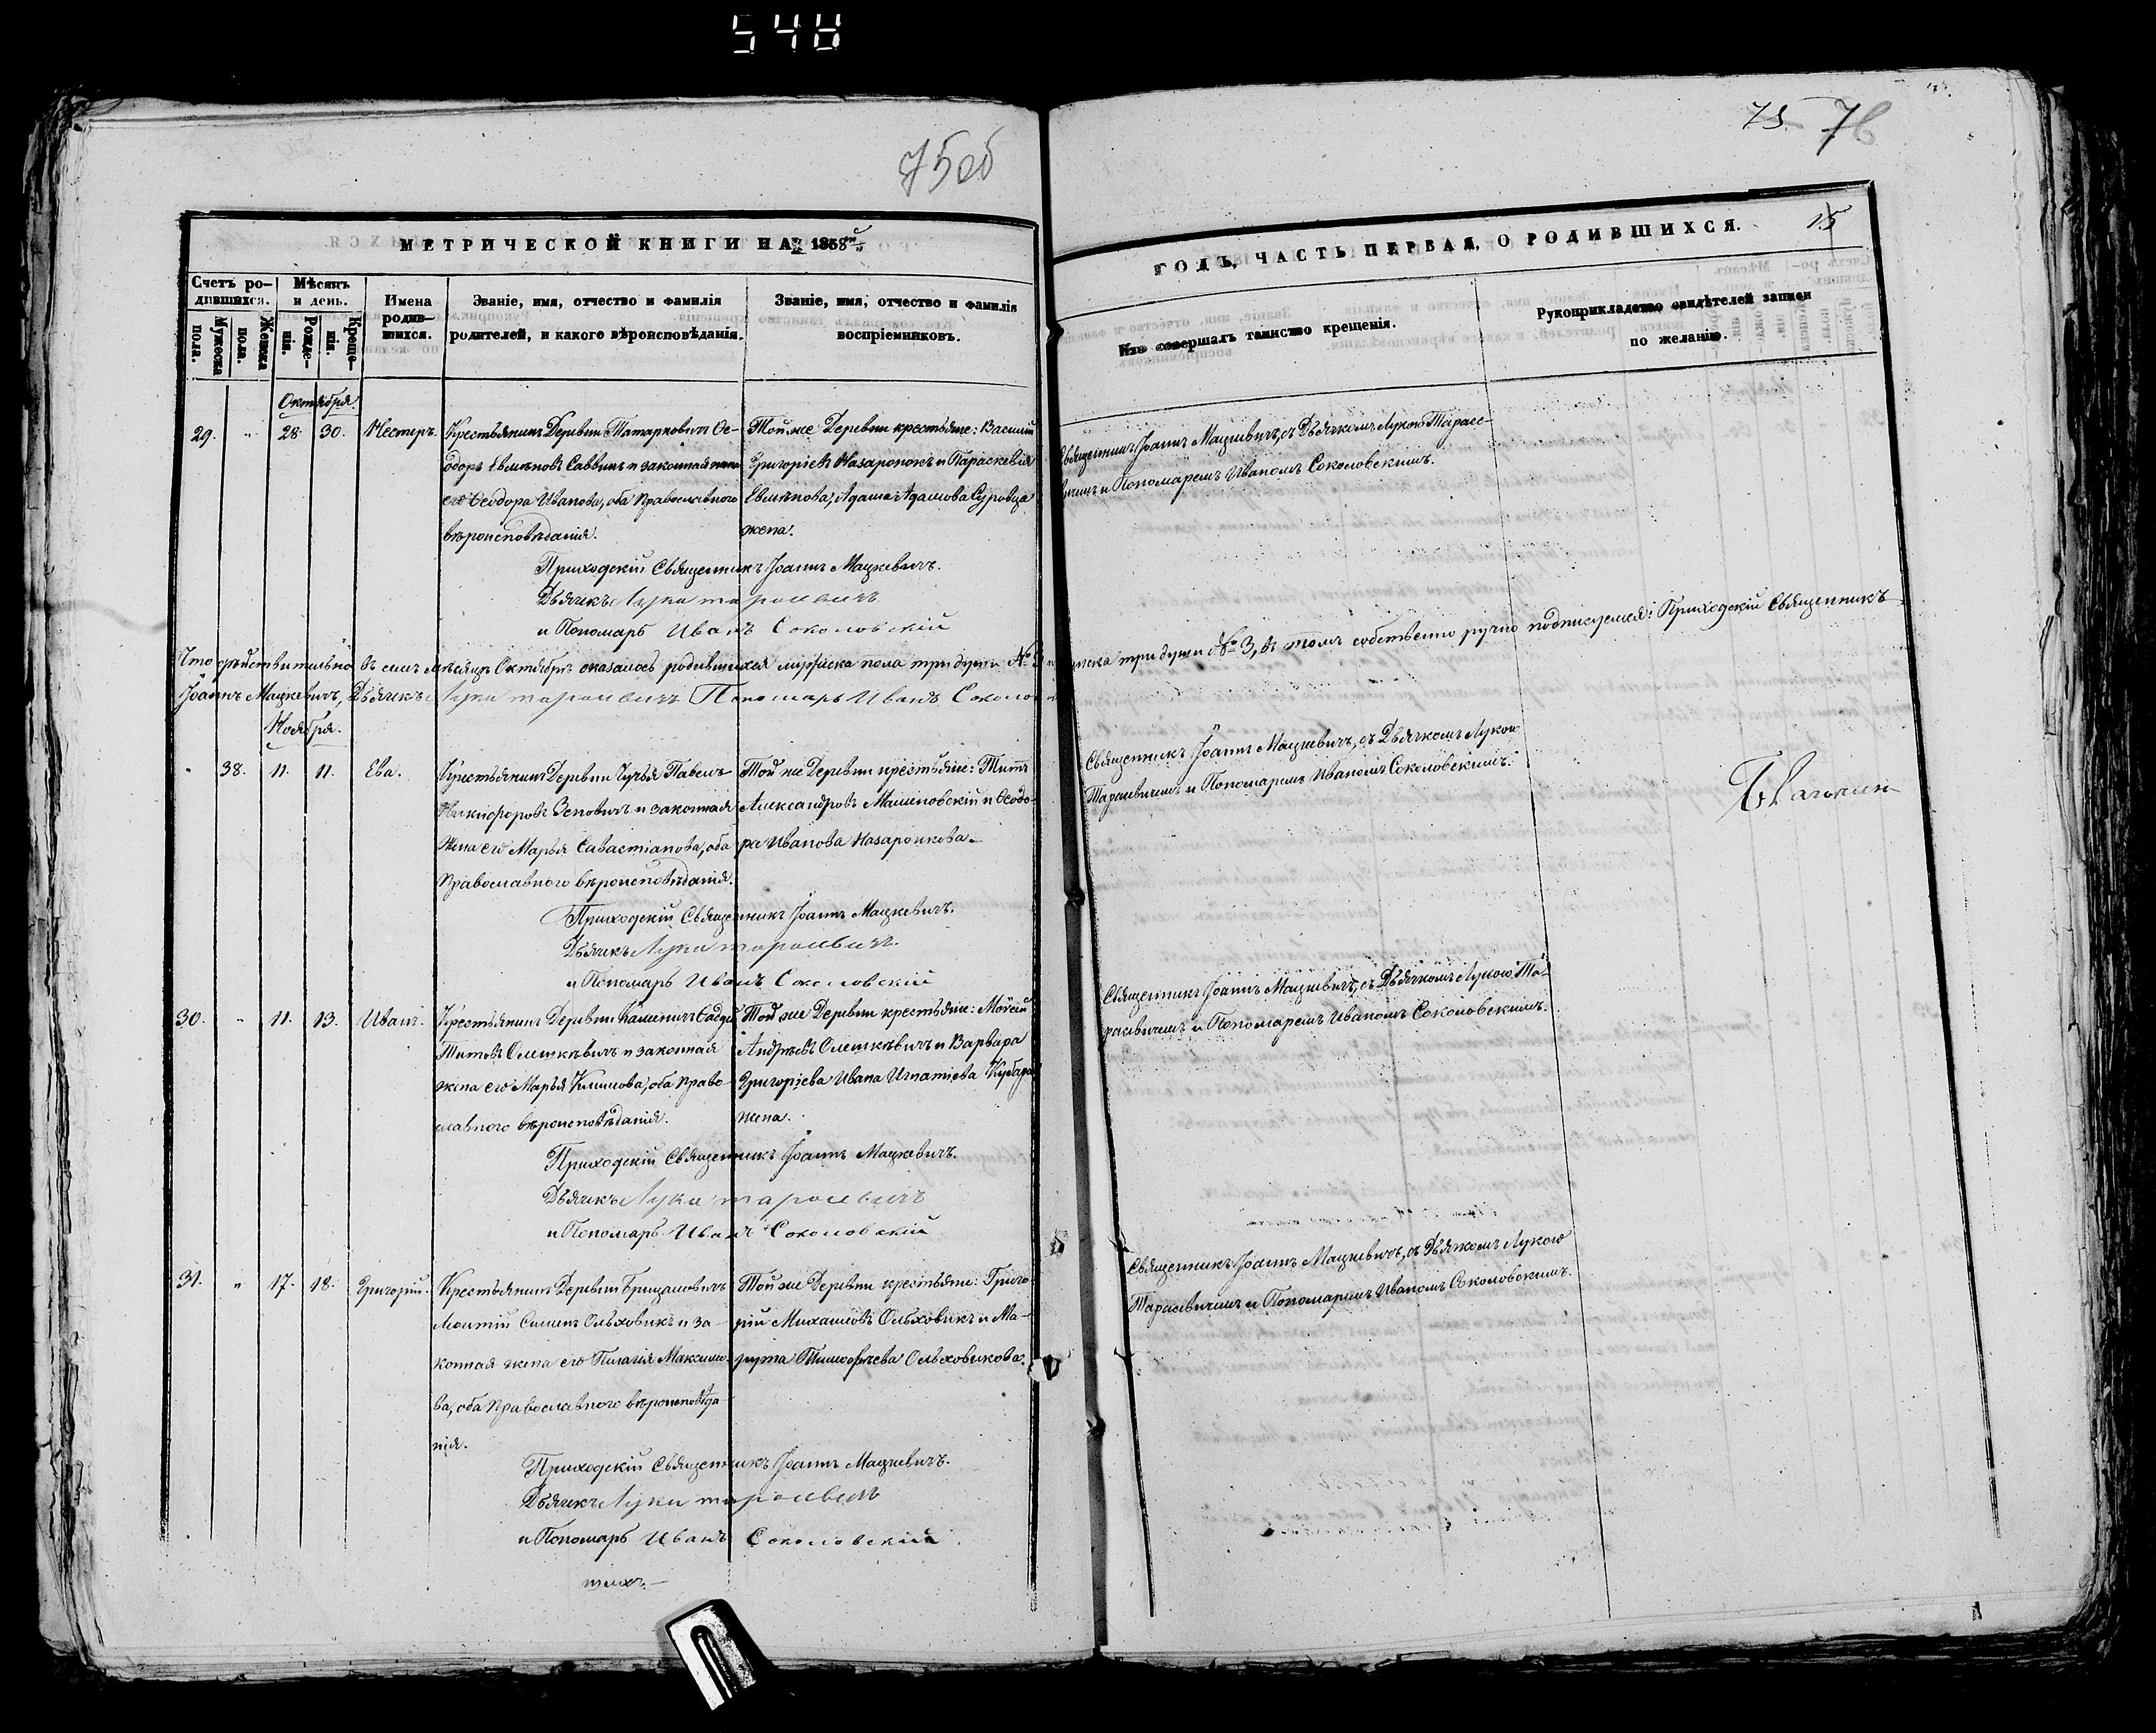 548
75об
75 76
МЕТРИЧЕСКОЙ КНИГИ НА 1858й
ГОДЪ, ЧАСТЬ ПЕРВАЯ, О РОДИВШИХСЯ.
15
Счетъ ро-
дившихся.
Мужеска пола.
Женска пола.
Мѣсяцъ
и день.
Рожде-
нія.
Креще-
нія.
Имена
родив-
шихся.
Званіе, имя, отчество и фамилія
родителей, и какого вѣроисповѣданія.
Званіе, имя, отчество и фамилія
воспріемниковъ.
Кто совершалъ таинство крещенія.
Рукоприкладство свидѣтелей записи
по желанію.
Октября
29. " 28 30. Несторъ.
Крестьянинъ Деревни Татарковичъ Ѳе-
одоръ Евменовъ Саввинъ и законная жена
его Ѳеодора Иванова, оба Православного
вѣроисповѣданія.
Той же Деревни крестьяне: Василий
Григоріевъ Назаронокъ и Параскевія
Евменова, Адама Адамова Суровца
жена.
Священникъ Іоаннъ Мацкевичъ, съ Дьячкомъ Лукою Тарасе-
вичемъ и Пономаремъ Иваномъ Соколовскимъ.
Приходскій Священникъ Іоаннъ Мацкевичъ.
Дьячекъ Лука Тарасевичъ
и Пономарь Иванъ Соколовскій
Что дѣйствительно въ семъ мѣсяцѣ Октябрѣ оказалось родившихся мужеска пола три души № 3 и женска три души № 3, въ томъ собственно ручно подписуемся: Приходскій Священникъ
Іоаннъ Мацкевичъ, Дьячекъ Лука Тарасевичъ Пономарь Иванъ Соколо
Ноября.
" 38. 11. 11. Ева.
Крестьянинъ Деревни Чучья Павелъ
Никифоровъ Зеновичъ и законная
жена его Марья Савастіанова, оба
Православного вѣроисповѣданія.
Той же Деревни крестьяне: Титъ
Александровъ Малиновскій и Ѳеодо-
ра Иванова Назаронкова.
Священникъ Іоаннъ Мацкевичъ, съ Дьячкомъ Лукою
Тарасевичемъ и Пономаремъ Иваномъ Соколовскимъ.
Приходскій Священникъ Іоаннъ Мацкевичъ.
Дьячекъ Лука Тарасевичъ
и Пономарь Иванъ Соколовскій
30. " 11. 13. Иванъ.
Крестьянинъ Деревни Каменичъ Ѳадей
Титовъ Олешкевичъ и законная
жена его Марья Климова, оба Право-
славного вѣроисповѣданія.
Той же Деревни крестьяне: Моисей
Андреевъ Олешкевичъ и Варвара
Григоріева Ивана Игнатіева
жена.
Священникъ Іоаннъ Мацкевичъ, съ Дьячкомъ Лукою Та-
расевичемъ и Пономаремъ Иваномъ Соколовскимъ.
Приходскій Священникъ Іоаннъ Мацкевичъ.
Дьячекъ Лука Тарасевичъ
и Пономарь Иванъ Соколовскій
31. " 17. 18. Григорій.
Крестьянинъ Деревни
Ольховикъ и за-
конная жена его Пилагія Максимо-
ва, оба Православного вѣроисповѣда-
нія.
Той же Деревни крестьяне: Григо-
рій Михайловъ Ольховикъ и Ма-
рута Тимофѣева Ольховикова.
Священникъ Іоаннъ Мацкевичъ, съ Дьячкомъ Лукою
Тарасевичемъ и Пономаремъ Иваномъ Соколовскимъ.
Приходскій Священникъ Іоаннъ Мацкевичъ.
Дьячекъ Лука Тарасевичъ
и Пономарь Иванъ Соколовскій